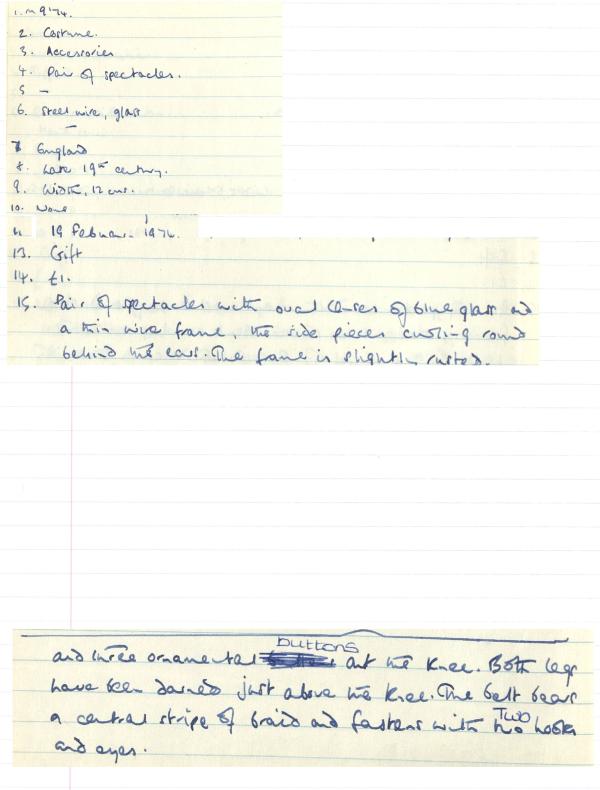 1. m 9'74.
2. Costume.
3. Accessories
4. Pair of spectacles.
5 —
6. Steel wire, glass
—
7 England
8. Late 19th century.
9. Width, 12 cms.
10. None
11. 19 February 1974.
13. Gift
14. £1.
15. Pair of spectacles with oval lenses of blue glass and
a thin wire frame, the side pieces curling round
behind the ears. The frame is slightly rusted.
buttons
and three ornamental at the knee. Both legs
have been darned just above the knee. The belt bears
TWO
a central stripe of braid and fastens with two hooks
and eyes.